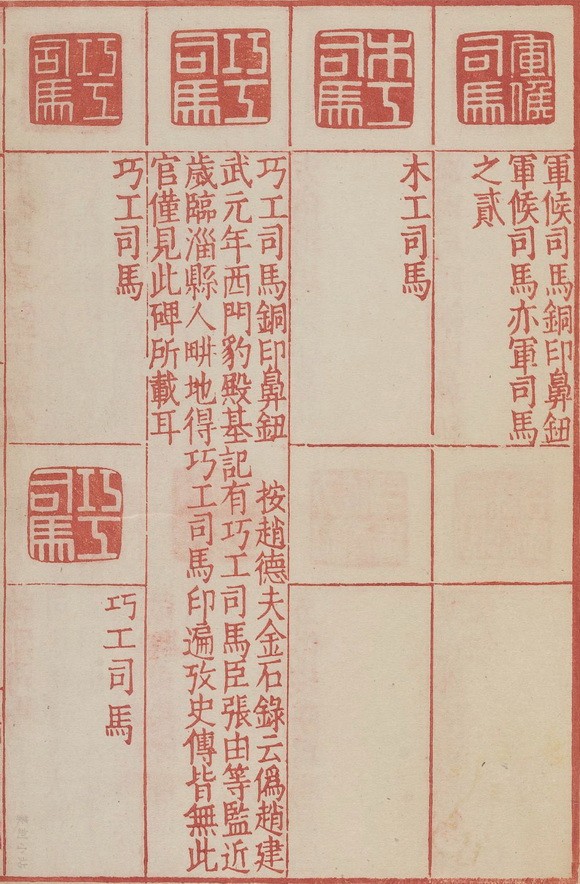 軍候
司馬
軍候司馬銅印鼻鈕
軍候司馬亦軍司馬
之貳
木工
司馬
木工司馬
巧工
司馬
巧工司馬銅印鼻鈕 按趙德夫金石錄云僞趙建
武元年西門豹殿基記有巧工司馬臣張由等監近
歲臨淄縣人畊地得巧工司馬印遍攷史傳皆無此
官僅見此碑所載耳
巧工
司馬
巧工司馬
巧工
司馬
巧工司馬